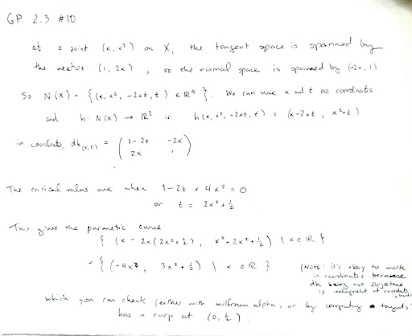 GP 2.3 #10
at a point (x, x²) on X, the tangent space is spanned by
the vector (1, 2x), so the normal space is spanned by (-2x, 1)
So N(X) = {(x, x², -2xt, t) ∈ ℝ⁴}. We can use x and t as coordinates.
and h: N(X) → ℝ² is h(x, x², -2xt, t) = (x-2xt, x²+t)
in coordinates, dh(x,t) = ( 1-2t -2x
2x 1 )
The critical values are when 1-2t + 4x² = 0
or t = 2x² + ½
This gives the parametric curve
{ (x - 2x(2x²+½), x²+2x²+½) | x ∈ ℝ }
= { (-4x³, 3x²+½) | x ∈ ℝ }
(Note: it's okay to work
in coordinates because
dh being not surjective
is independent of coordinates
which you can check (either with wolfram alpha, or by computing a tangent)
has a cusp at (0, ½)